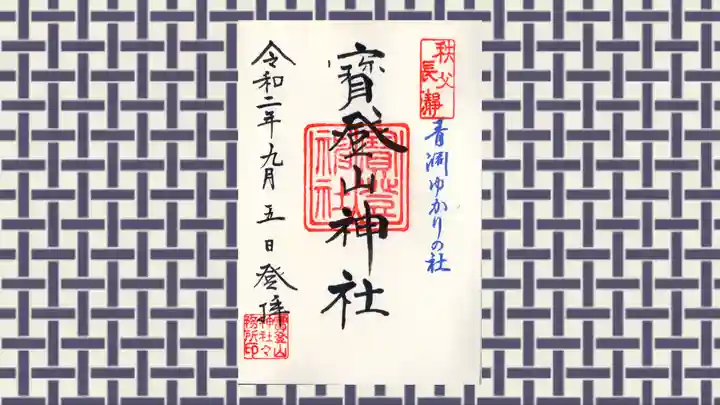 秩父
長瀞
青淵ゆかりの社
寳登山神社
寳登山
神社
令和二年九月五日登拝
寳登山
神社々
務所印